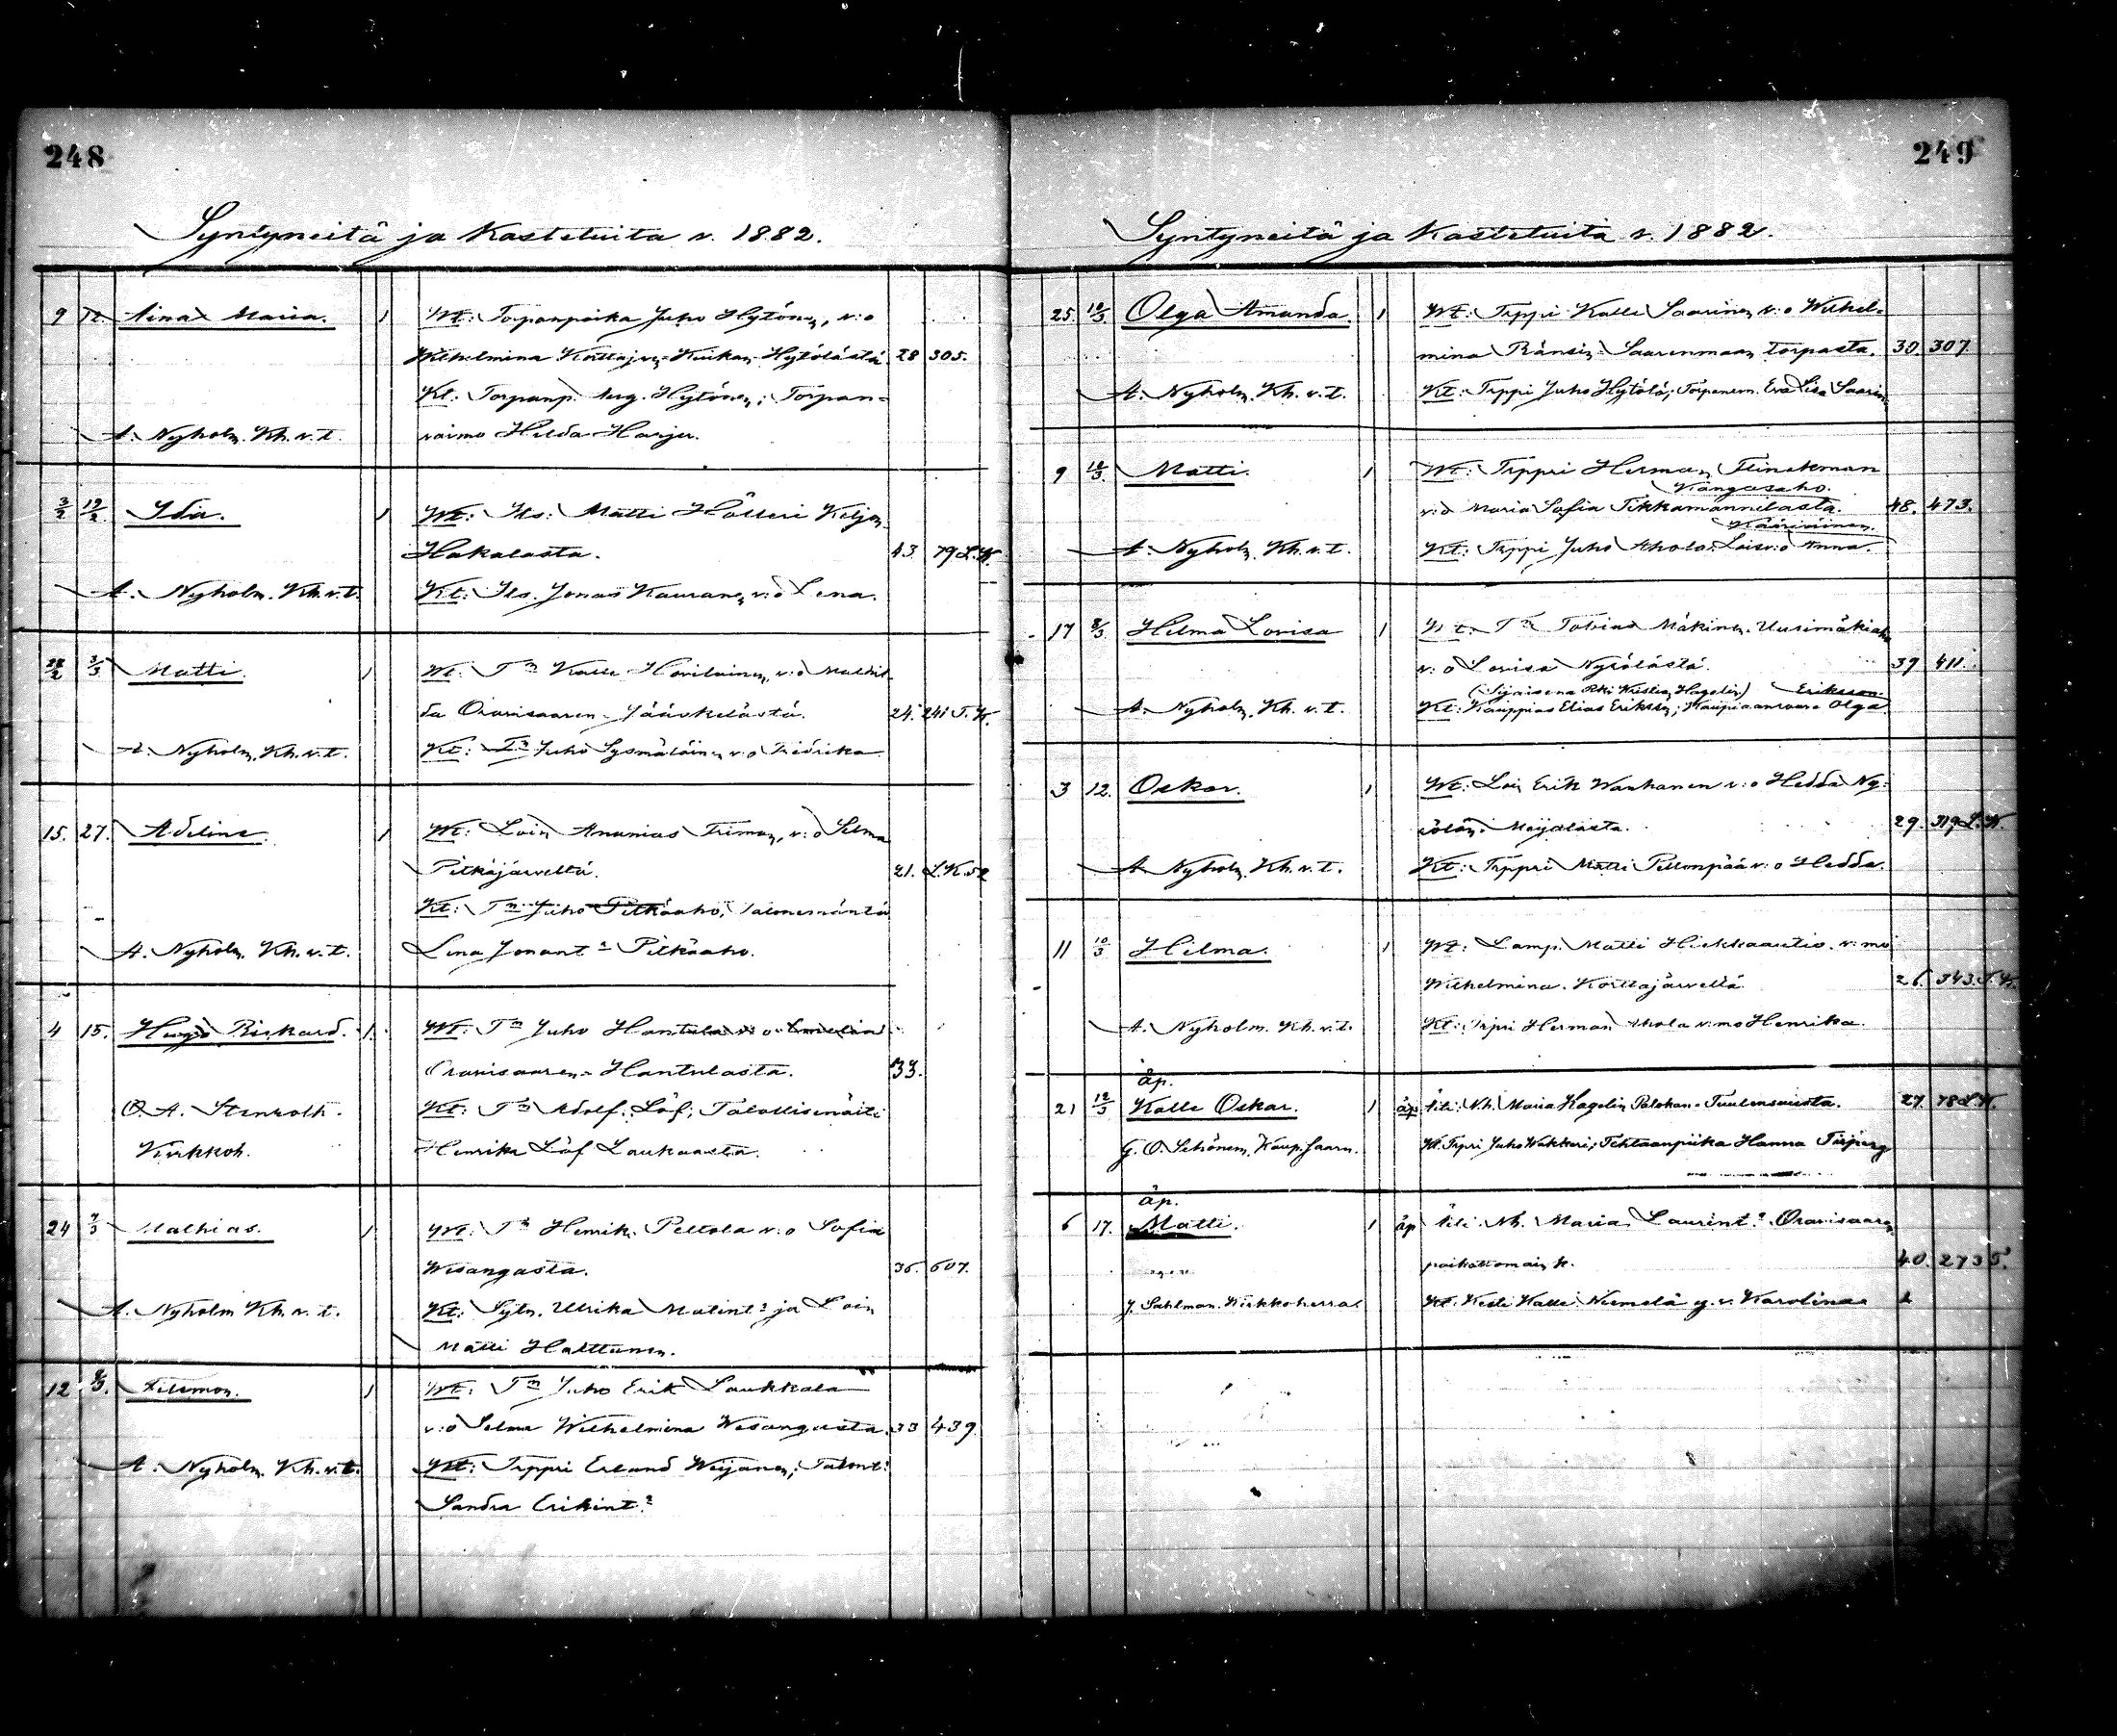 248
Syntyneitä ja Kastetuita v. 1882.
9 12. Aina Maria. 1 Wt: Torpanpoika Juho Hytönen, v:o
Wilhelmina Korttajrven Hytölästä. 28 305.
Kt: Torpanp. Aug. Hytönen; Torpan-
A. Nyholm. Kh. v. t. vaimo Hilda Harju.
3/2 19/2 Ida. 1 Wt: Its: Matti Hölleri Keljon
Hakalasta. 43. 79 L.K.
A. Nyholm. Kh. v. t. Kt: Its. Jonas Kauranen v:o Lena.
28/2 3/3 Matti. 1 Wt: Tn Kalle Havilainen, v:o Mathil-
da Oravisaaren-Jääskelästä. 24. 241 T.K.
A. Nyholm. Kh. v. t. Kt: Tn Juho Sysmäläinen v:o Fredrika.
15. 27. Adelina. 1 Wt: Loin Ananias Timon, v:o Selma
Pitkäjärveltä. 21. L.K. 52
Kt: Tn Juho Pitkäaho, Talonemäntä
A. Nyholm. Kh. v. t. Lena Jonant. Pitkäaho.
4 15. Hugo Rickard. 1. Wt: Tn Juho Hantula v:o Emelia
Oravisaaren-Hantulasta. 33.
O. A. Stenroth. Kt: Tn Adolf Löf; Talollisenäiti
Kirkkoh. Henrika Löf Laukaasta.
24 7/3 Mathias. 1 Wt: Tn Henrik Peltola v:o Sofia
Wesangasta. 36. 607.
A. Nyholm Kh. v. t. Kt: Sytn. Ulrika Matint. ja Loin
Matti Halttunen.
12 8/3. Filemon. 1 Wt: Tn Juho Erik Laukkala
v:o Selma Wilhelmina Wesangasta. 33 439.
A. Nyholm. Kh. v. t. Kt: Trppri Erland Weijanen; Talont:
Sandra Erikint.
249
Syntyneitä ja Kastetuita v. 1882.
25. 12/3 Olga Amanda. 1 Wt: Trppi Kalle Saarinen v:o Wilhel-
mina Ränsin-Saarenmaan torpasta. 30. 307.
A. Nyholm. Kh. v. t. Kt: Trppi Juho Hytölä; Torpanem. Eva Lisa Saarin
9 12/3. Matti. 1 Wt: Trppri Herman Flinckman
Kangasaho.
v:o Maria Sofia Tikkamannilasta. 48. 473.
Kääriäinen.
A. Nyholm. Kh. v. t. Kt: Trppi Juho Ahola: Lois v:o Anna.
17 8/3. Hilma Lovisa 1 Wt: Tn Tobias Mäkinen Uusimäki
v:o Lovisa Nyrölästä. 39 411.
(Sijaisena Rki Kristian Hagelin) Eriksson.
A. Nyholm. Kh. v. t. Kt: Kauppias Elias Eriksson; Kaupiaanrouva Olga
3 12. Oskar. 1 Wt: Loin Erik Wankanen v:o Hedda Ny-
rölän Maijalasta. 29. 319 L.K.
A. Nyholm. Kh. v. t. Kt: Trppri Matti Pellonpää v:o Hedda.
11 10/3 Hilma. 1 Wt: Lamp. Matti Hiekkaautio. v:mo
Wilhelmina. Korttajärveltä. 26. 343. T.K.
A. Nyholm. Kh. v. t. Kt: Trpri Herman Ahola v:mo Henrika.
äp.
21 12/3 Kalle Oskar. 1 äp Äiti: Nh. Maria Hagelin Palokan-Tuulensuusta. 27. 78 L.K.
G. O. Schöneman. Kaup. Saarn. Kt. Trpri Juho Wakkari; Tehtaanpiika Hanna Törjberg
äp.
6 17. Matti. 1 äp Äiti. Nh. Maria Laurint. Oravisaaren
paikattomain k. 40. 273 S.
J. Sahlman. Kirkkoherra. Kt. Kesti Kalle Niemelä y. v. Karolina